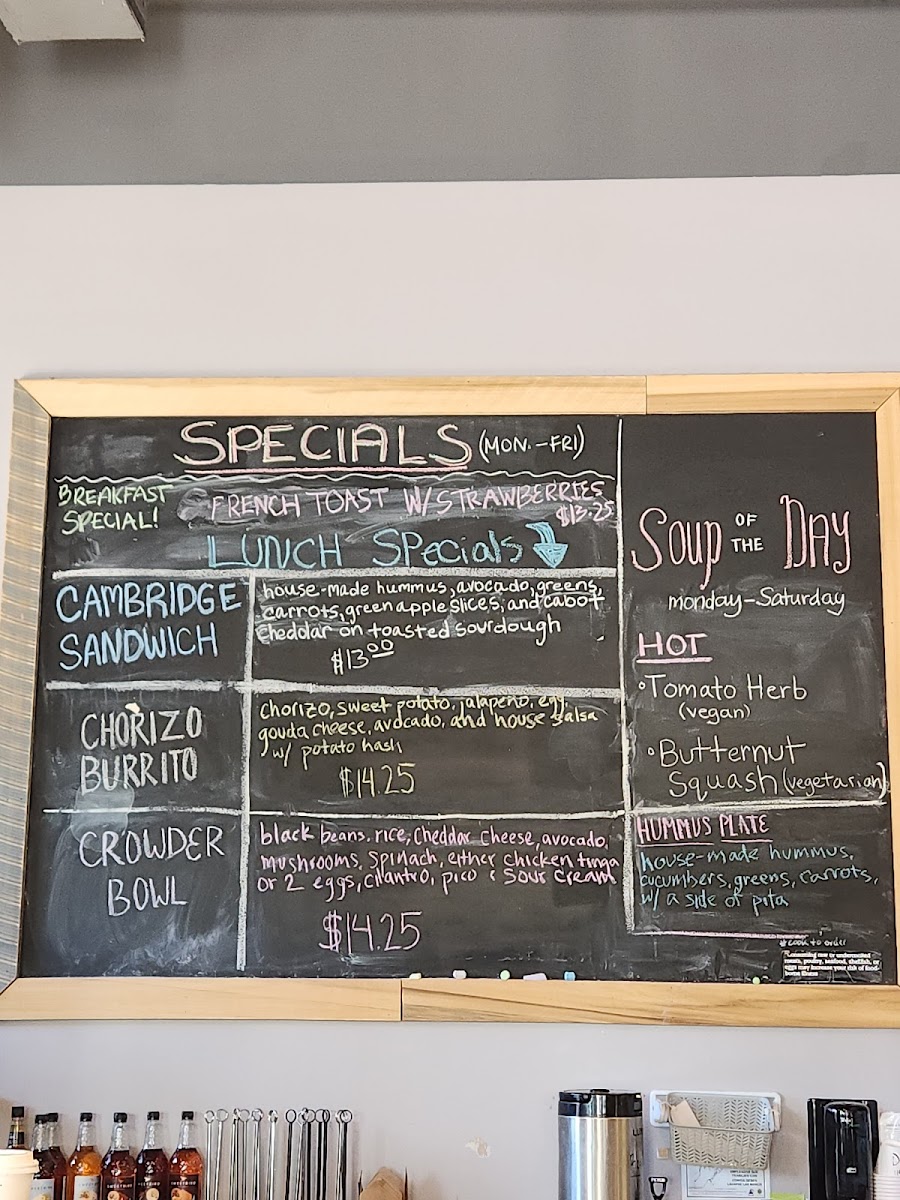 SPECIALS (MON.-FRI)
BREAKFAST
SPECIAL!
FRENCH TOAST W/ STRAWBERRIES
$13.25
LUNCH SPecialS
CAMBRIDGE
SANDWICH
house-made hummus, avocado, greens,
carrots, green apple slices, and cabot
cheddar on toasted sourdough
$13.00
CHORIZO
BURRITO
chorizo, sweet potato, jalapeño, egg,
gouda cheese, avocado, and house salsa
w/ potato hash
$14.25
CROWDER
BOWL
black beans, rice, cheddar cheese, avocado,
mushrooms, spinach, either chicken tinga
or 2 eggs, cilantro, pico & sour cream
$14.25
Soup OF THE DAY
monday-Saturday
HOT
•Tomato Herb
(vegan)
•Butternut
Squash (vegetarian)
HUMMUS PLATE
house-made hummus,
cucumbers, greens, carrots,
w/ a side of pita
*cook to order
*Consuming raw or undercooked
meats, poultry, seafood, shellfish, or
eggs may increase your risk of food-
borne illness